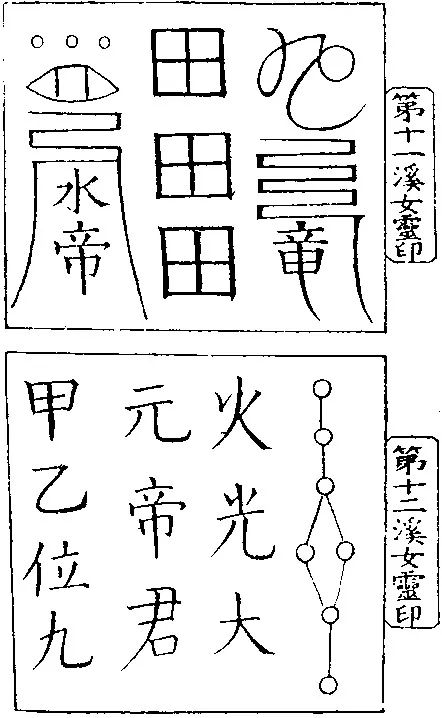 第十一溪女靈印
田田田
水帝
第十二溪女靈印
火光大
元帝君
甲乙位九